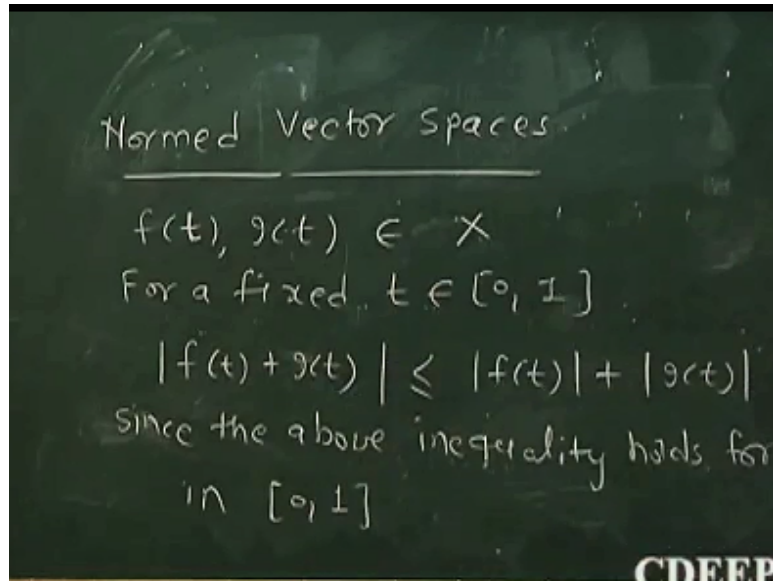 Normed Vector Spaces
f(t), g(t) ∈ X
For a fixed t ∈ [0, 1]
|f(t) + g(t)| ≤ |f(t)| + |g(t)|
since the above inequality holds for
in [0, 1]
CDEEP